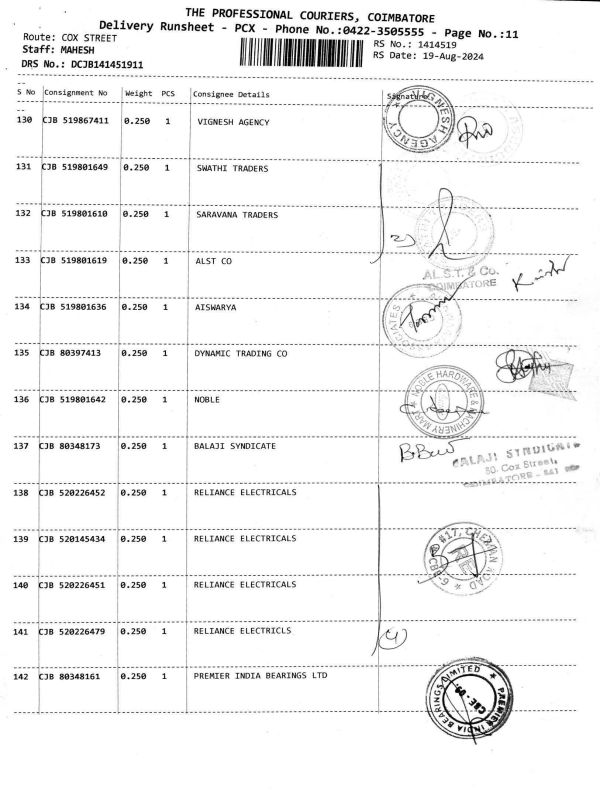 THE PROFESSIONAL COURIERS, COIMBATORE
Delivery Runsheet - PCX - Phone No.:0422-3505555 - Page No.:11
Route: COX STREET
RS No.: 1414519
Staff: MAHESH
RS Date: 19-Aug-2024
DRS No.: DCJB141451911
S No Consignment No Weight PCS Consignee Details Signature
130 CJB 519867411 0.250 1 VIGNESH AGENCY
VIGNESH AGENCY
131 CJB 519801649 0.250 1 SWATHI TRADERS
132 CJB 519801610 0.250 1 SARAVANA TRADERS
133 CJB 519801619 0.250 1 ALST CO
AL.S.T. & Co.
COIMBATORE
134 CJB 519801636 0.250 1 AISWARYA
135 CJB 80397413 0.250 1 DYNAMIC TRADING CO
136 CJB 519801642 0.250 1 NOBLE
NOBLE HARDWARE & MACHINERY MART
137 CJB 80348173 0.250 1 BALAJI SYNDICATE
BALAJI SYNDICATE
80. Cox Street,
COIMBATORE - 641
138 CJB 520226452 0.250 1 RELIANCE ELECTRICALS
139 CJB 520145434 0.250 1 RELIANCE ELECTRICALS
140 CJB 520226451 0.250 1 RELIANCE ELECTRICALS
141 CJB 520226479 0.250 1 RELIANCE ELECTRICLS
4
142 CJB 80348161 0.250 1 PREMIER INDIA BEARINGS LTD
PREMIER INDIA BEARINGS LIMITED